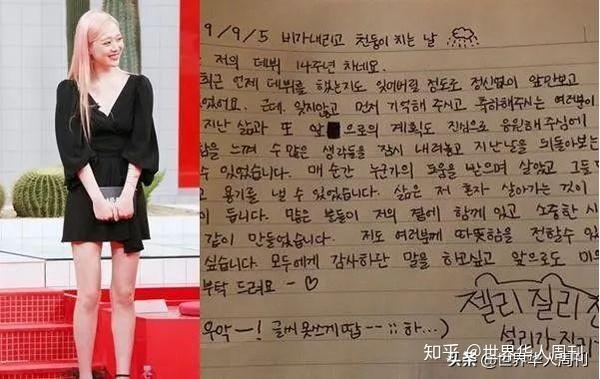 9/9/5 비가내리고 천둥이 치는 날
저의 데뷔 14주년 차네요.
최근 언제 데뷔를 했는지도 잊어버릴 정도로 정신없이 앞만보고
있었어요. 근데, 잊지않고 먼저 기억해 주시고 축하해주시는 여러분이
지난 삶과 또 앞으로의 계획도 진심으로 응원해 주심에
함을 느껴 수 많은 생각들을 잠시 내려놓고 지난날을 되돌아보는
수 있었습니다. 매 순간 누군가의 도움을 받으며 살았고 그들
용기를 낼 수 있었습니다. 삶은 저 혼자 살아가는 것이
이 듭니다. 많은 분들이 저의 곁에 함께 있고 소중한 시
같이 만들었습니다. 저도 여러분께 따뜻함을 전할수 있
싶습니다. 모두에게 감사하단 말을 하고싶고 앞으로도 미
부탁 드려요 - ♡
우악-! 글씨 못쓰게땁--;; 하...)
젤리 질리
설리가
知乎 @世界华人周刊
头条 @世界华人周刊